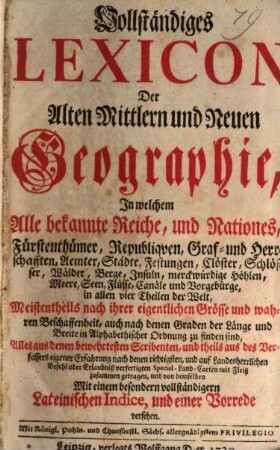 79
Vollständiges
LEXICON
Der
Alten Mittlern und Neuen
Geographie,
In welchem
Alle bekannte Reiche, und Nationes,
Fürstenthümer, Republiqven, Graf- und Herr-
schafften, Aemter, Städte, Festungen, Clöster, Schlös-
ser, Wälder, Berge, Insuln, merckwürdige Höhlen,
Meere, Seen, Flüsse, Canäle und Vorgebürge,
in allen vier Theilen der Welt,
Meistentheils nach ihrer eigentlichen Grösse und wah-
ren Beschaffenheit, auch nach denen Graden der Länge und
Breite in Alphabethischer Ordnung zu finden sind,
Alles aus denen bewehrtesten Scribenten, und theils aus des Ver-
fassers eigener Erfahrung nach denen richtigsten, und auf Landesherrlichen
Befehl oder Erlaubniß verfertigten Special-Land-Carten mit Fleiß
zusammen getragen, und von demselben
Mit einem besondern vollständigern
Lateinischen Indice, und einer Vorrede
versehen.
Mit Königl. Pohln. und Churfürstl. Sächs. allergnädigstem PRIVILEGIO
Leipzig, verlegts Wolffgang Deer, 1730